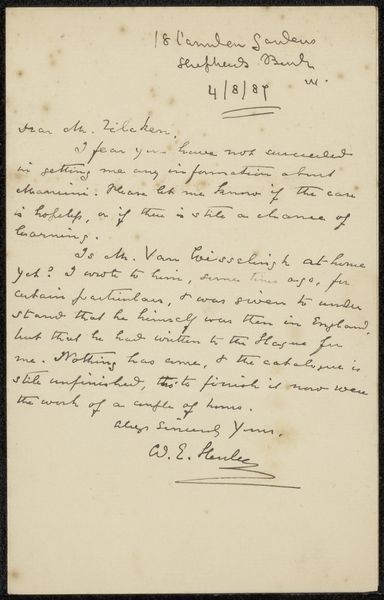 18 Camden Gardens
Shepherds Bush
W.
4/8/87
Dear Mr. Zilcken,
I fear you have not succeeded
in getting me any information about
Mancini. Please let me know if the case
is hopeless, or if there is still a chance of
learning.
Is Mr. Van Wisselingh at home
yet? I wrote to him, some time ago, for
certain particulars, & was given to under
stand that he himself was then in England,
but that he had written to the Hague for
me. Nothing has come, & the catalogue is
still unfinished, tho' to finish it now were
the work of a couple of hours.
Always Sincerely Yours,
W. E. Henley